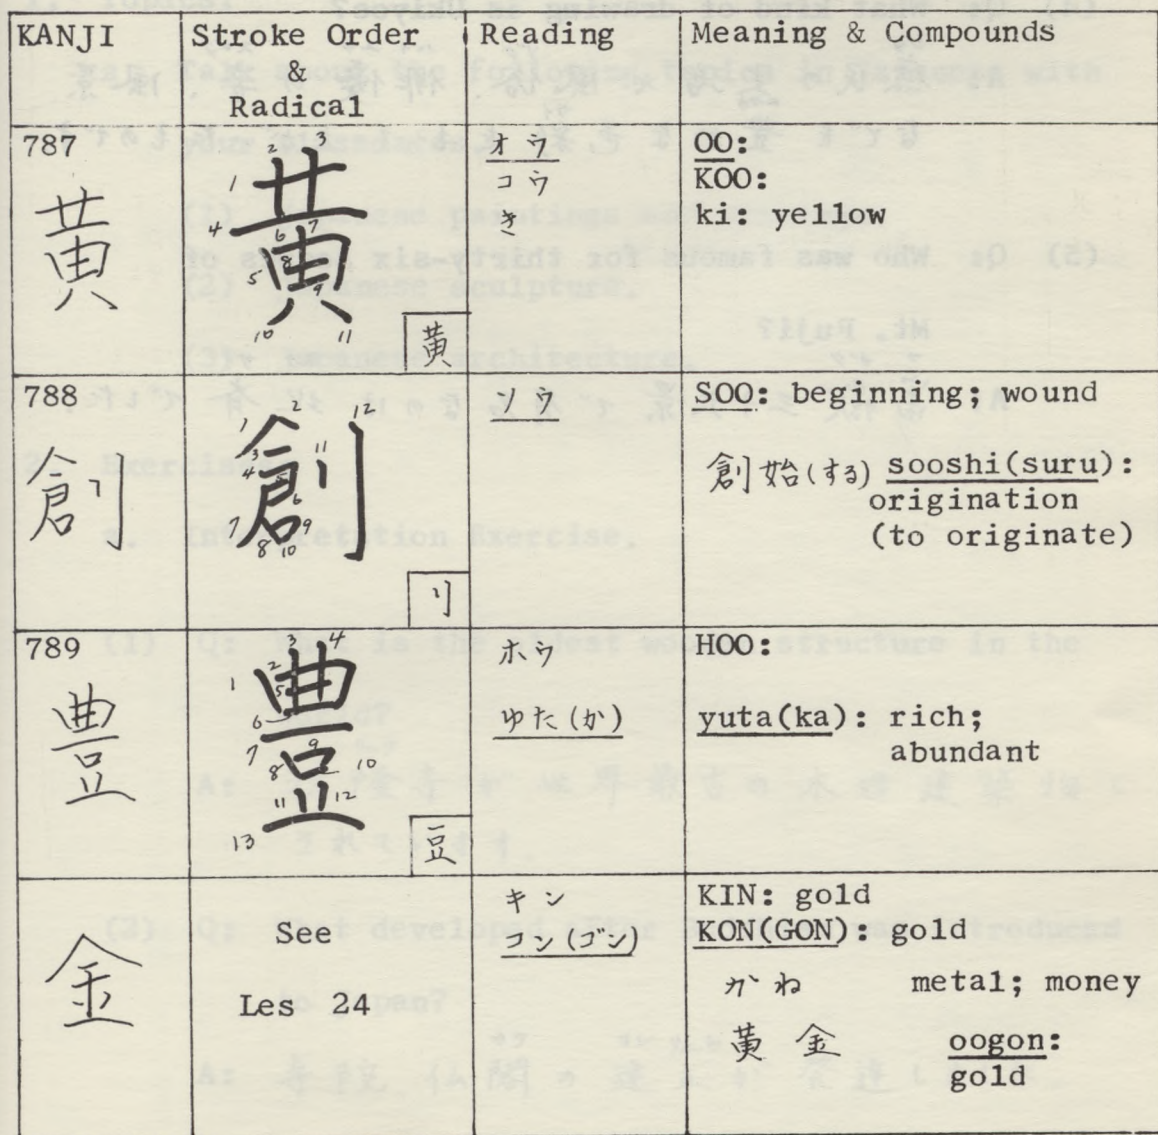 KANJI
Stroke Order
&
Radical
Reading
Meaning & Compounds
787
黄
黄
1 2 3 4 5 6 7 8 9 10 11
黄
オウ
コウ
き
OO:
KOO:
ki: yellow
788
創
創
1 2 3 4 5 6 7 8 9 10 11 12
刂
ソウ
SOO: beginning; wound
創始(する) sooshi(suru):
origination
(to originate)
789
豊
豊
1 2 3 4 5 6 7 8 9 10 11 12 13
豆
ホウ
ゆた(か)
HOO:
yuta(ka): rich;
abundant
金
See
Les 24
キン
コン(ゴン)
KIN: gold
KON(GON): gold
かね metal; money
黄金 oogon:
gold